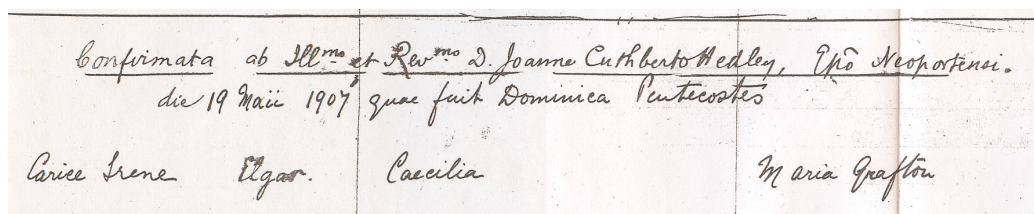 Confirmata ab Illmo et Revmo D. Joanne Cuthberto Hedley, Epō Neoportensi.
die 19 Maii 1907 quae fuit Dominica Pentecostes
Carice Irene Elgar. Caecilia Maria Grafton